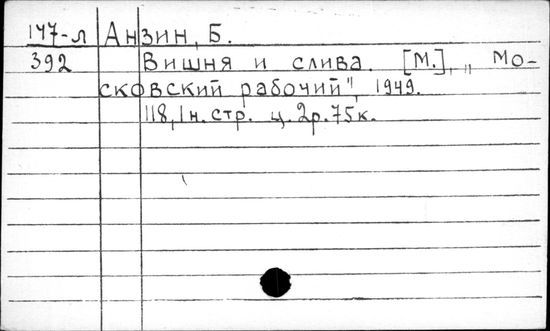 147-л Анзин, Б.
392 Вишня и слива. [М.], „Мо-
сковский рабочий", 1949.
118, 1 н. стр. ц. 2р. 75к.